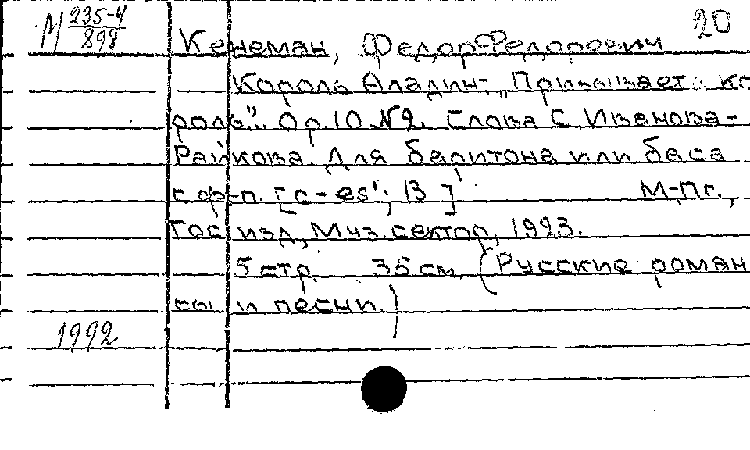 М 235-4
898
20
Кенеман, Федор Федорович
Король Аладин. „Приказает ко
роль". Op. 10 №2. Слова С. Иванова-
Райкова. Для баритона или баса
с ф-п. [c-es'; B]   М-Пг.,
Гос изд, Муз. сектор, 1923.
5 стр. 35 см. (Русские роман
сы и песни.)
1992